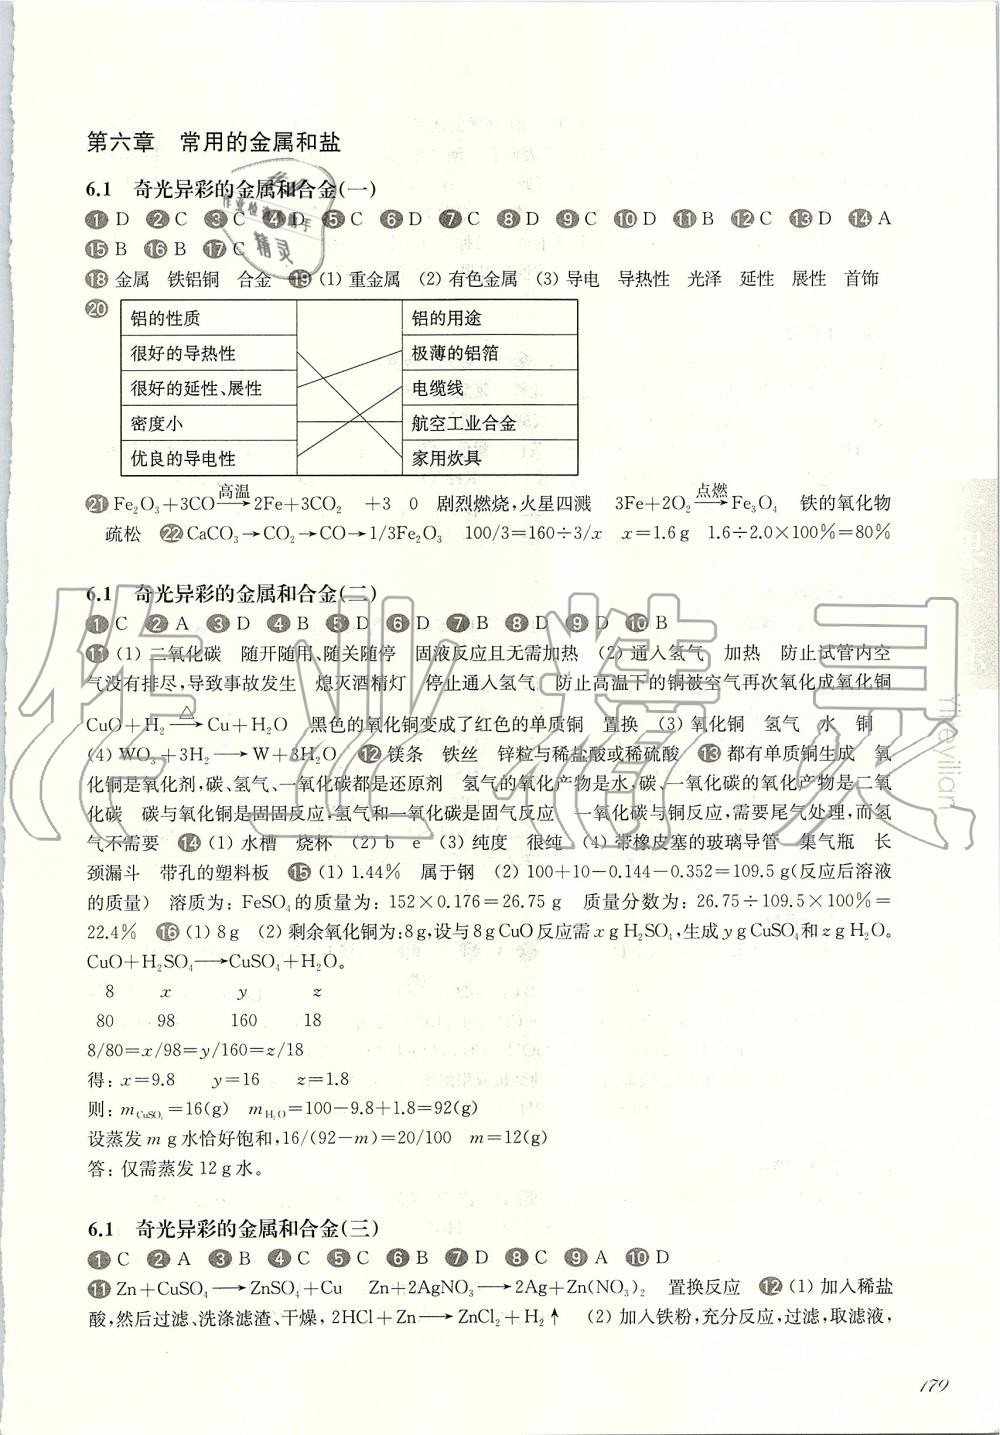 第六章 常用的金属和盐
6.1 奇光异彩的金属和合金(一)
❶ D ❷ C ❸ C ❹ D ❺ C ❻ D ❼ C ❽ D ❾ C ❿ D ⓫ B ⓬ C ⓭ D ⓮ A
⓯ B ⓰ B ⓱ C
⓲ 金属 铁铝铜 合金 ⓳ (1) 重金属 (2) 有色金属 (3) 导电 导热性 光泽 延性 展性 首饰
⓴
铝的性质 铝的用途
很好的导热性 极薄的铝箔
很好的延性、展性 电缆线
密度小 航空工业合金
优良的导电性 家用炊具
㉑ Fe₂O₃+3CO —高温→ 2Fe+3CO₂ +3 0 剧烈燃烧,火星四溅 3Fe+2O₂ —点燃→ Fe₃O₄ 铁的氧化物
疏松 ㉒ CaCO₃→CO₂→CO→1/3Fe₂O₃ 100/3=160÷3/x x=1.6 g 1.6÷2.0×100%=80%
6.1 奇光异彩的金属和合金(二)
❶ C ❷ A ❸ D ❹ B ❺ D ❻ D ❼ B ❽ D ❾ D ❿ B
⓫ (1) 二氧化碳 随开随用、随关随停 固液反应且无需加热 (2) 通入氢气 加热 防止试管内空
气没有排尽,导致事故发生 熄灭酒精灯 停止通入氢气 防止高温下的铜被空气再次氧化成氧化铜
CuO+H₂ —△→ Cu+H₂O 黑色的氧化铜变成了红色的单质铜 置换 (3) 氧化铜 氢气 水 铜
(4) WO₃+3H₂ ⟶ W+3H₂O ⓬ 镁条 铁丝 锌粒与稀盐酸或稀硫酸 ⓭ 都有单质铜生成 氧
化铜是氧化剂,碳、氢气、一氧化碳都是还原剂 氢气的氧化产物是水,碳、一氧化碳的氧化产物是二氧
化碳 碳与氧化铜是固固反应,氢气和一氧化碳是固气反应 一氧化碳与铜反应,需要尾气处理,而氢
气不需要 ⓮ (1) 水槽 烧杯 (2) b e (3) 纯度 很纯 (4) 带橡皮塞的玻璃导管 集气瓶 长
颈漏斗 带孔的塑料板 ⓯ (1) 1.44% 属于钢 (2) 100+10-0.144-0.352=109.5 g(反应后溶液
的质量) 溶质为: FeSO₄的质量为: 152×0.176=26.75 g 质量分数为: 26.75÷109.5×100%=
22.4% ⓰ (1) 8 g (2) 剩余氧化铜为:8 g,设与 8 g CuO 反应需 x g H₂SO₄,生成 y g CuSO₄和 z g H₂O。
CuO+H₂SO₄⟶CuSO₄+H₂O。
8 x y z
80 98 160 18
8/80=x/98=y/160=z/18
得: x=9.8 y=16 z=1.8
则: m CuSO₄=16(g) m H₂O=100-9.8+1.8=92(g)
设蒸发 m g 水恰好饱和,16/(92-m)=20/100 m=12(g)
答: 仅需蒸发 12 g 水。
6.1 奇光异彩的金属和合金(三)
❶ C ❷ A ❸ B ❹ C ❺ C ❻ B ❼ D ❽ C ❾ A ❿ D
⓫ Zn+CuSO₄⟶ZnSO₄+Cu Zn+2AgNO₃⟶2Ag+Zn(NO₃)₂ 置换反应 ⓬ (1) 加入稀盐
酸,然后过滤、洗涤滤渣、干燥, 2HCl+Zn⟶ZnCl₂+H₂↑ (2) 加入铁粉,充分反应,过滤,取滤液,
179
作业精灵